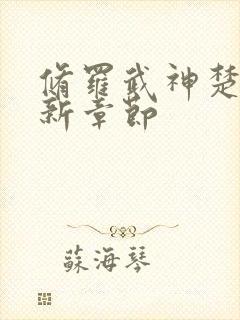 脩羅武神楚
新章節
蘇海琴